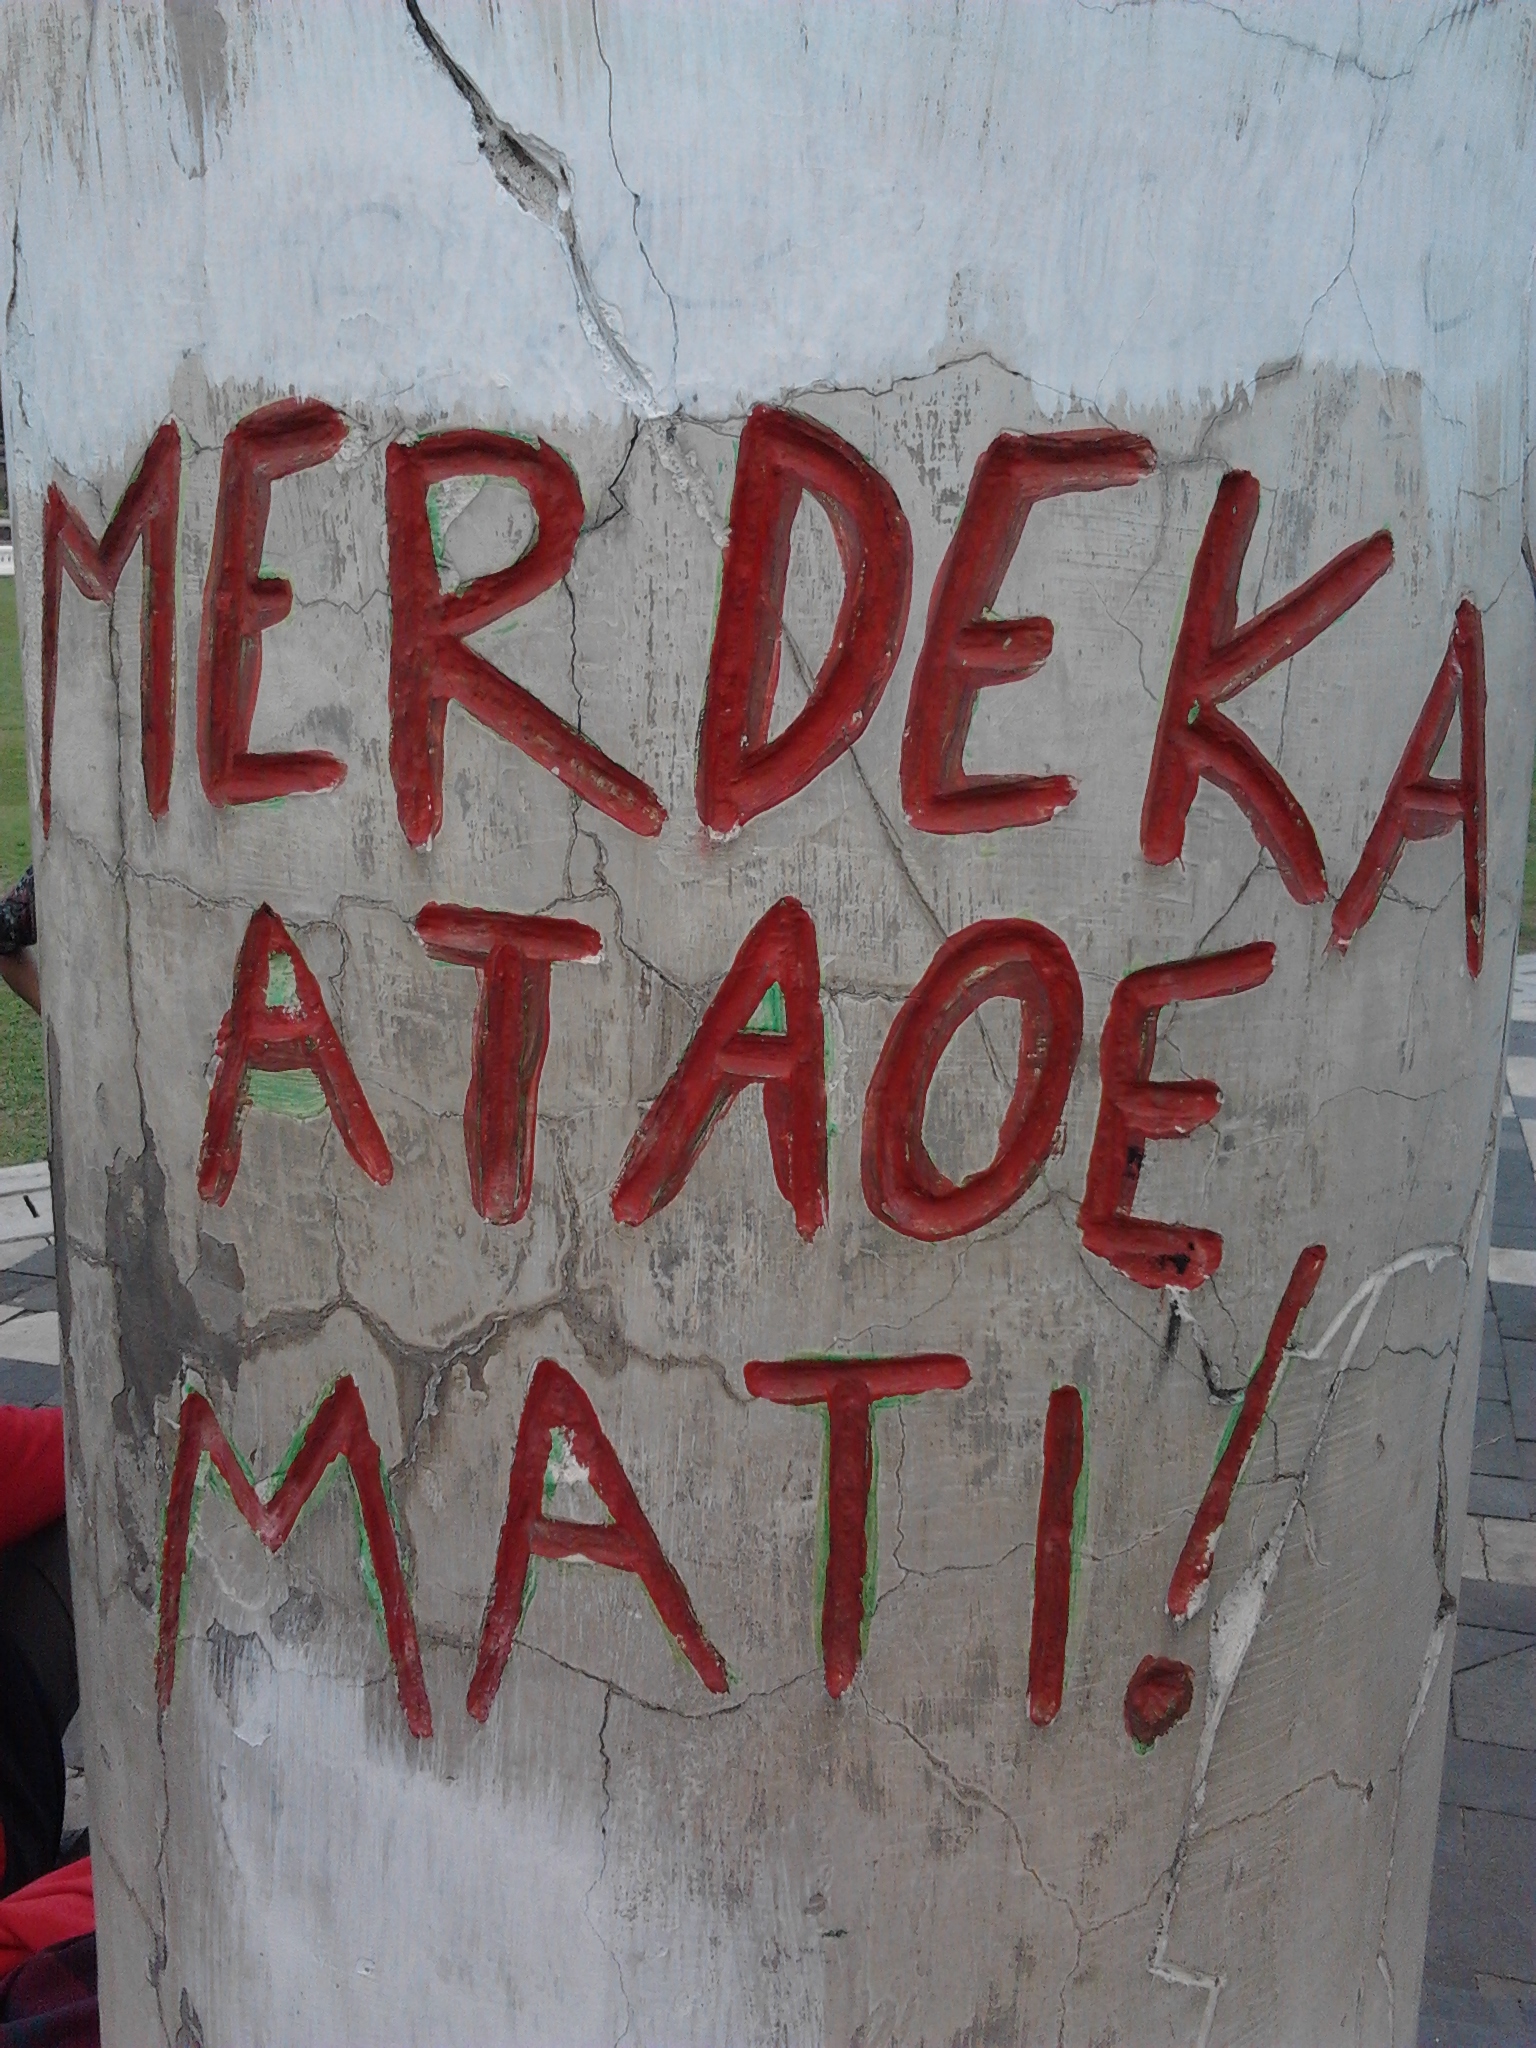 MERDEKA
ATAOE
MATI!